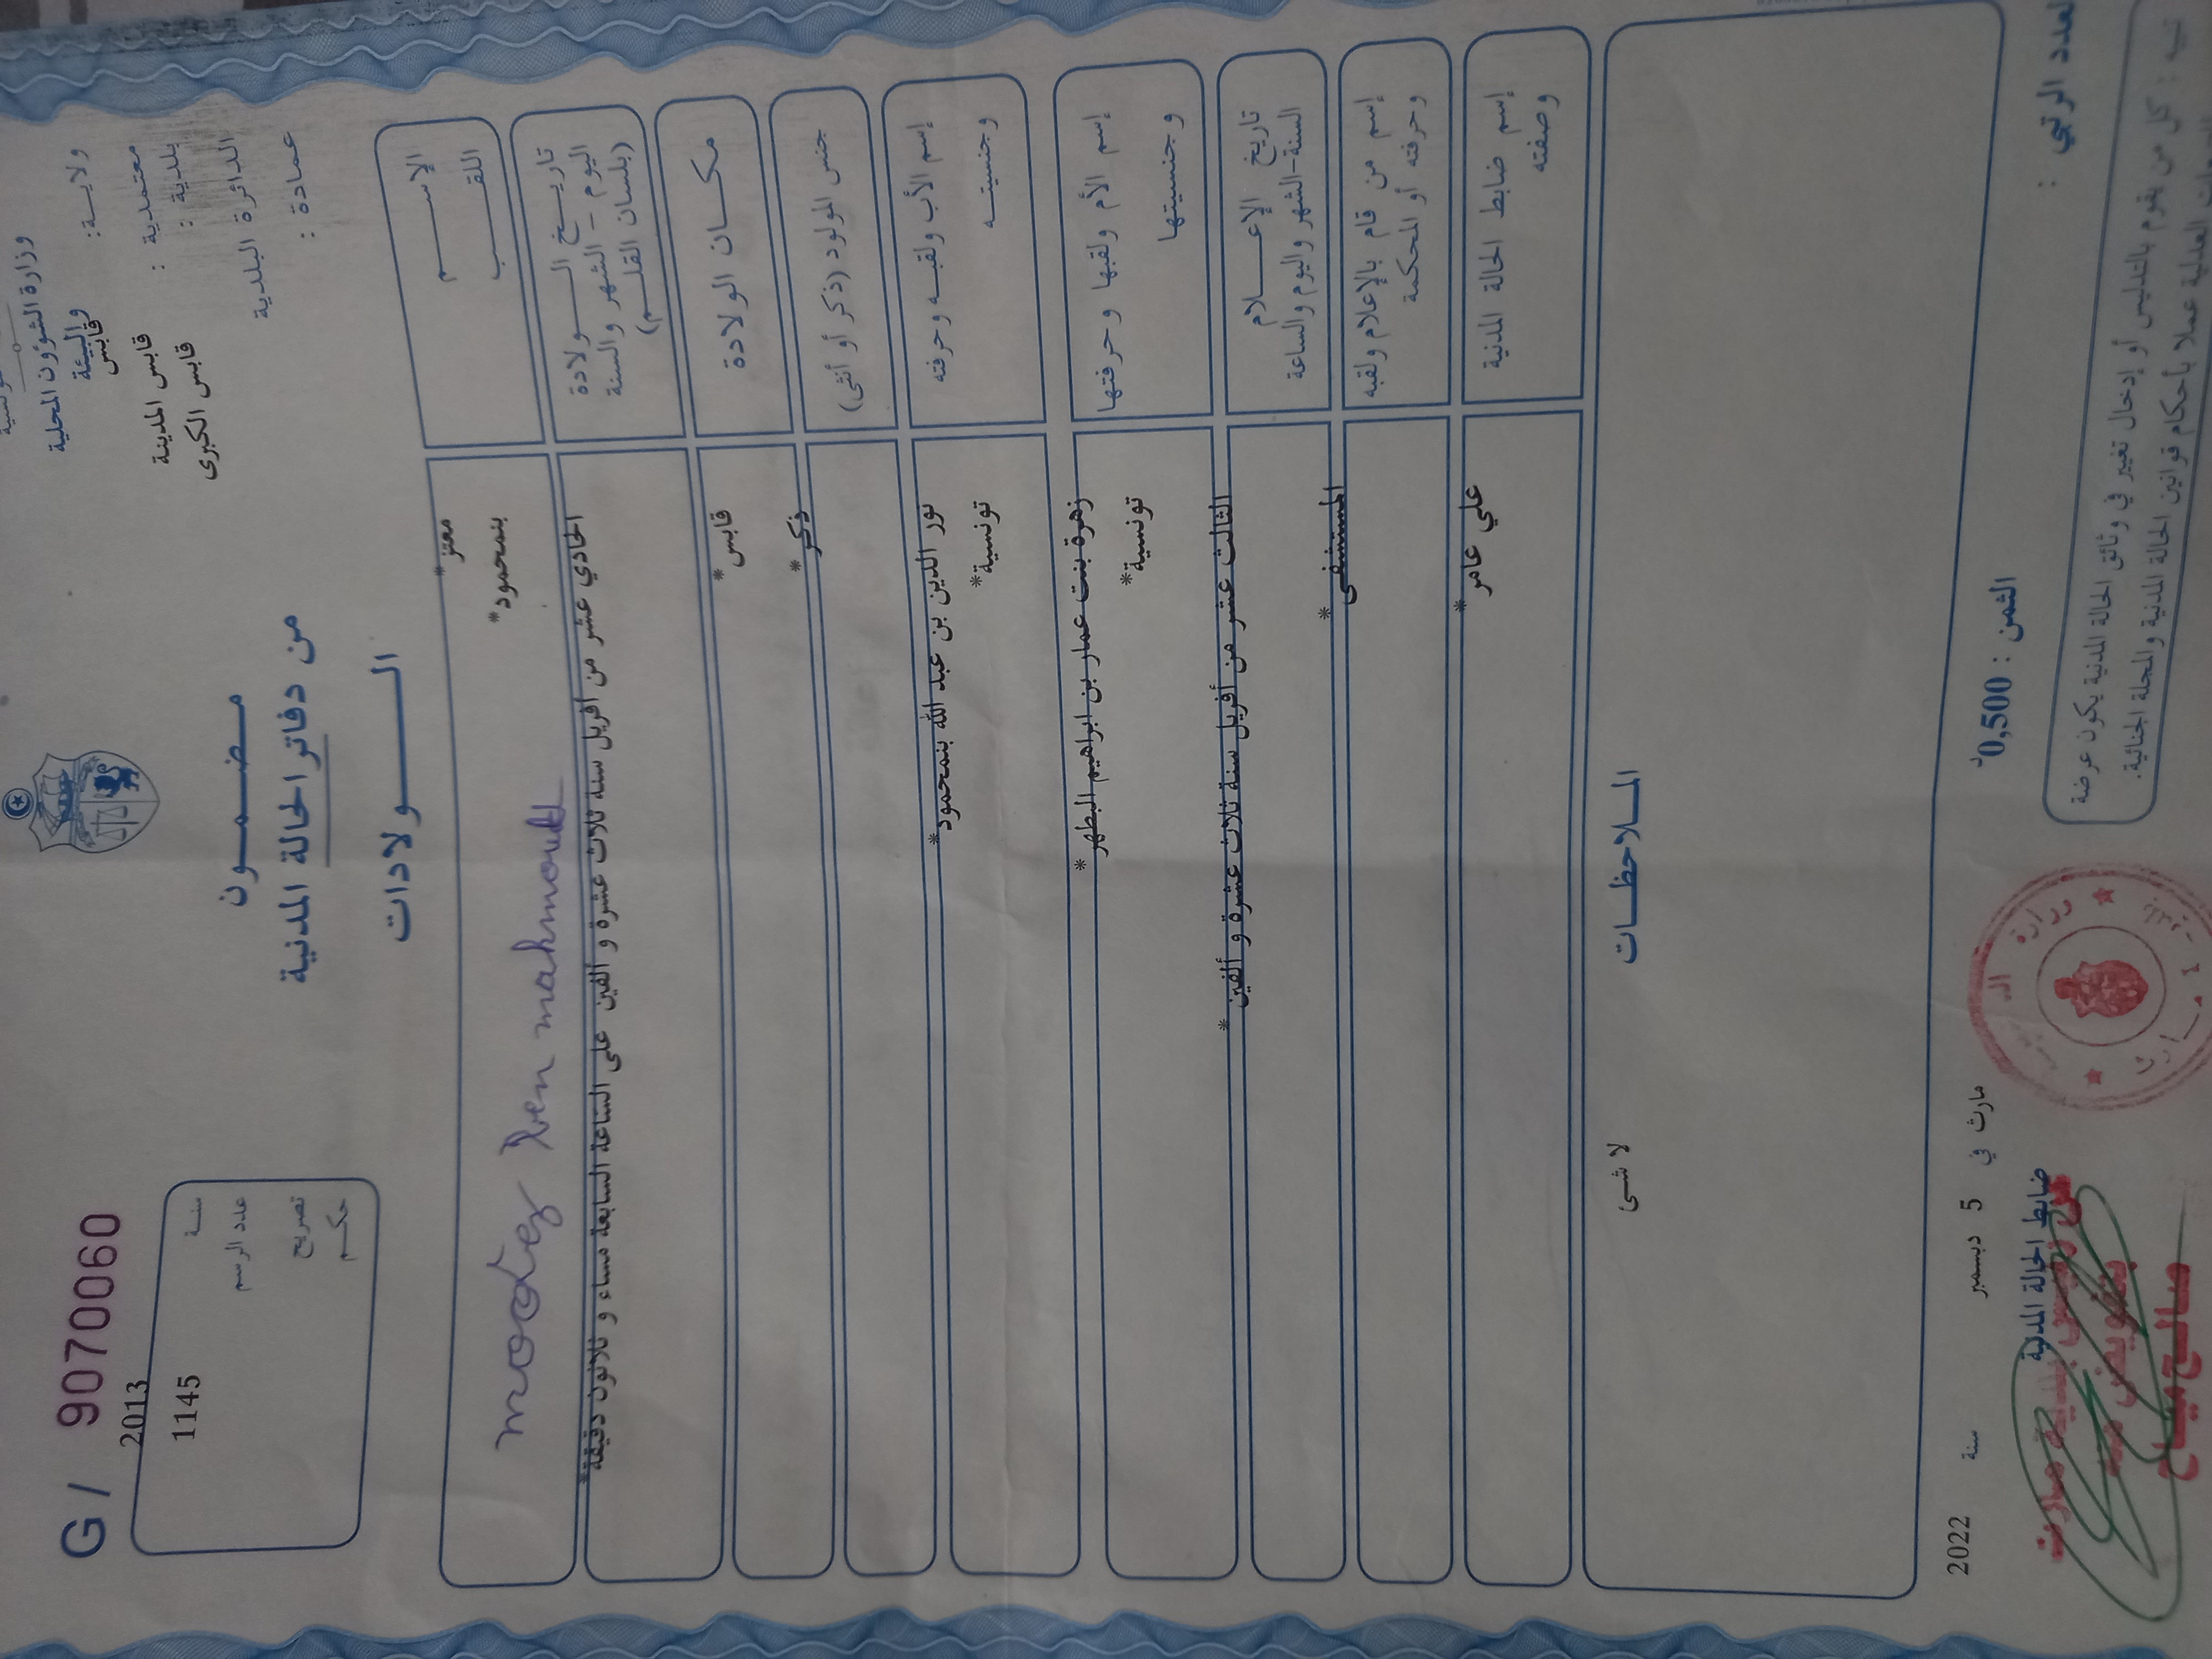 وزارة الشؤون المحلية
والبيئة
ولاية: قابس
معتمدية : قابس المدينة
بلدية : قابس الكبرى
الدائرة البلدية
عمادة :
G / 9070060
سنة 2013
عدد الرسم 1145
تصريح
حكم
مضمون
من دفاتر الحالة المدنية
الولادات
الإسم معتز*
اللقب بنمحمود*
mooтez ben mahmoud
تاريخ الولادة
اليوم - الشهر والسنة
(بلسان القلم)
الحادي عشر من أفريل سنة ثلاث عشرة و ألفين على الساعة السابعة مساء و ثلاثون دقيقة*
مكان الولادة
قابس*
جنس المولود (ذكر أو أنثى)
ذكر*
إسم الأب ولقبه وحرفته
نور الدين بن عبد الله بنمحمود*
وجنسيته
تونسية*
إسم الأم ولقبها وحرفتها
زهرة بنت عمار بن ابراهيم البطهر*
وجنسيتها
تونسية*
تاريخ الإعلام
السنة-الشهر واليوم والساعة
الثالث عشر من أفريل سنة ثلاث عشرة و ألفين*
إسم من قام بالإعلام ولقبه
وحرفته أو المحكمة
المستشفى*
إسم ضابط الحالة المدنية
وصفته
علي عامر*
الملاحظات
لا شى
مارث في 5 ديسمبر سنة 2022
ضابط الحالة المدنية
عن رئيس بلدية مارث
بتفويض منه
صالح مياح
الثمن : 0,500د
العدد الرتبي :
تنبيه : كل من يقوم بالتدليس أو إدخال تغيير في وثائق الحالة المدنية يكون عرضة
العدلية عملا بأحكام قوانين الحالة المدنية والمجلة الجنائية.